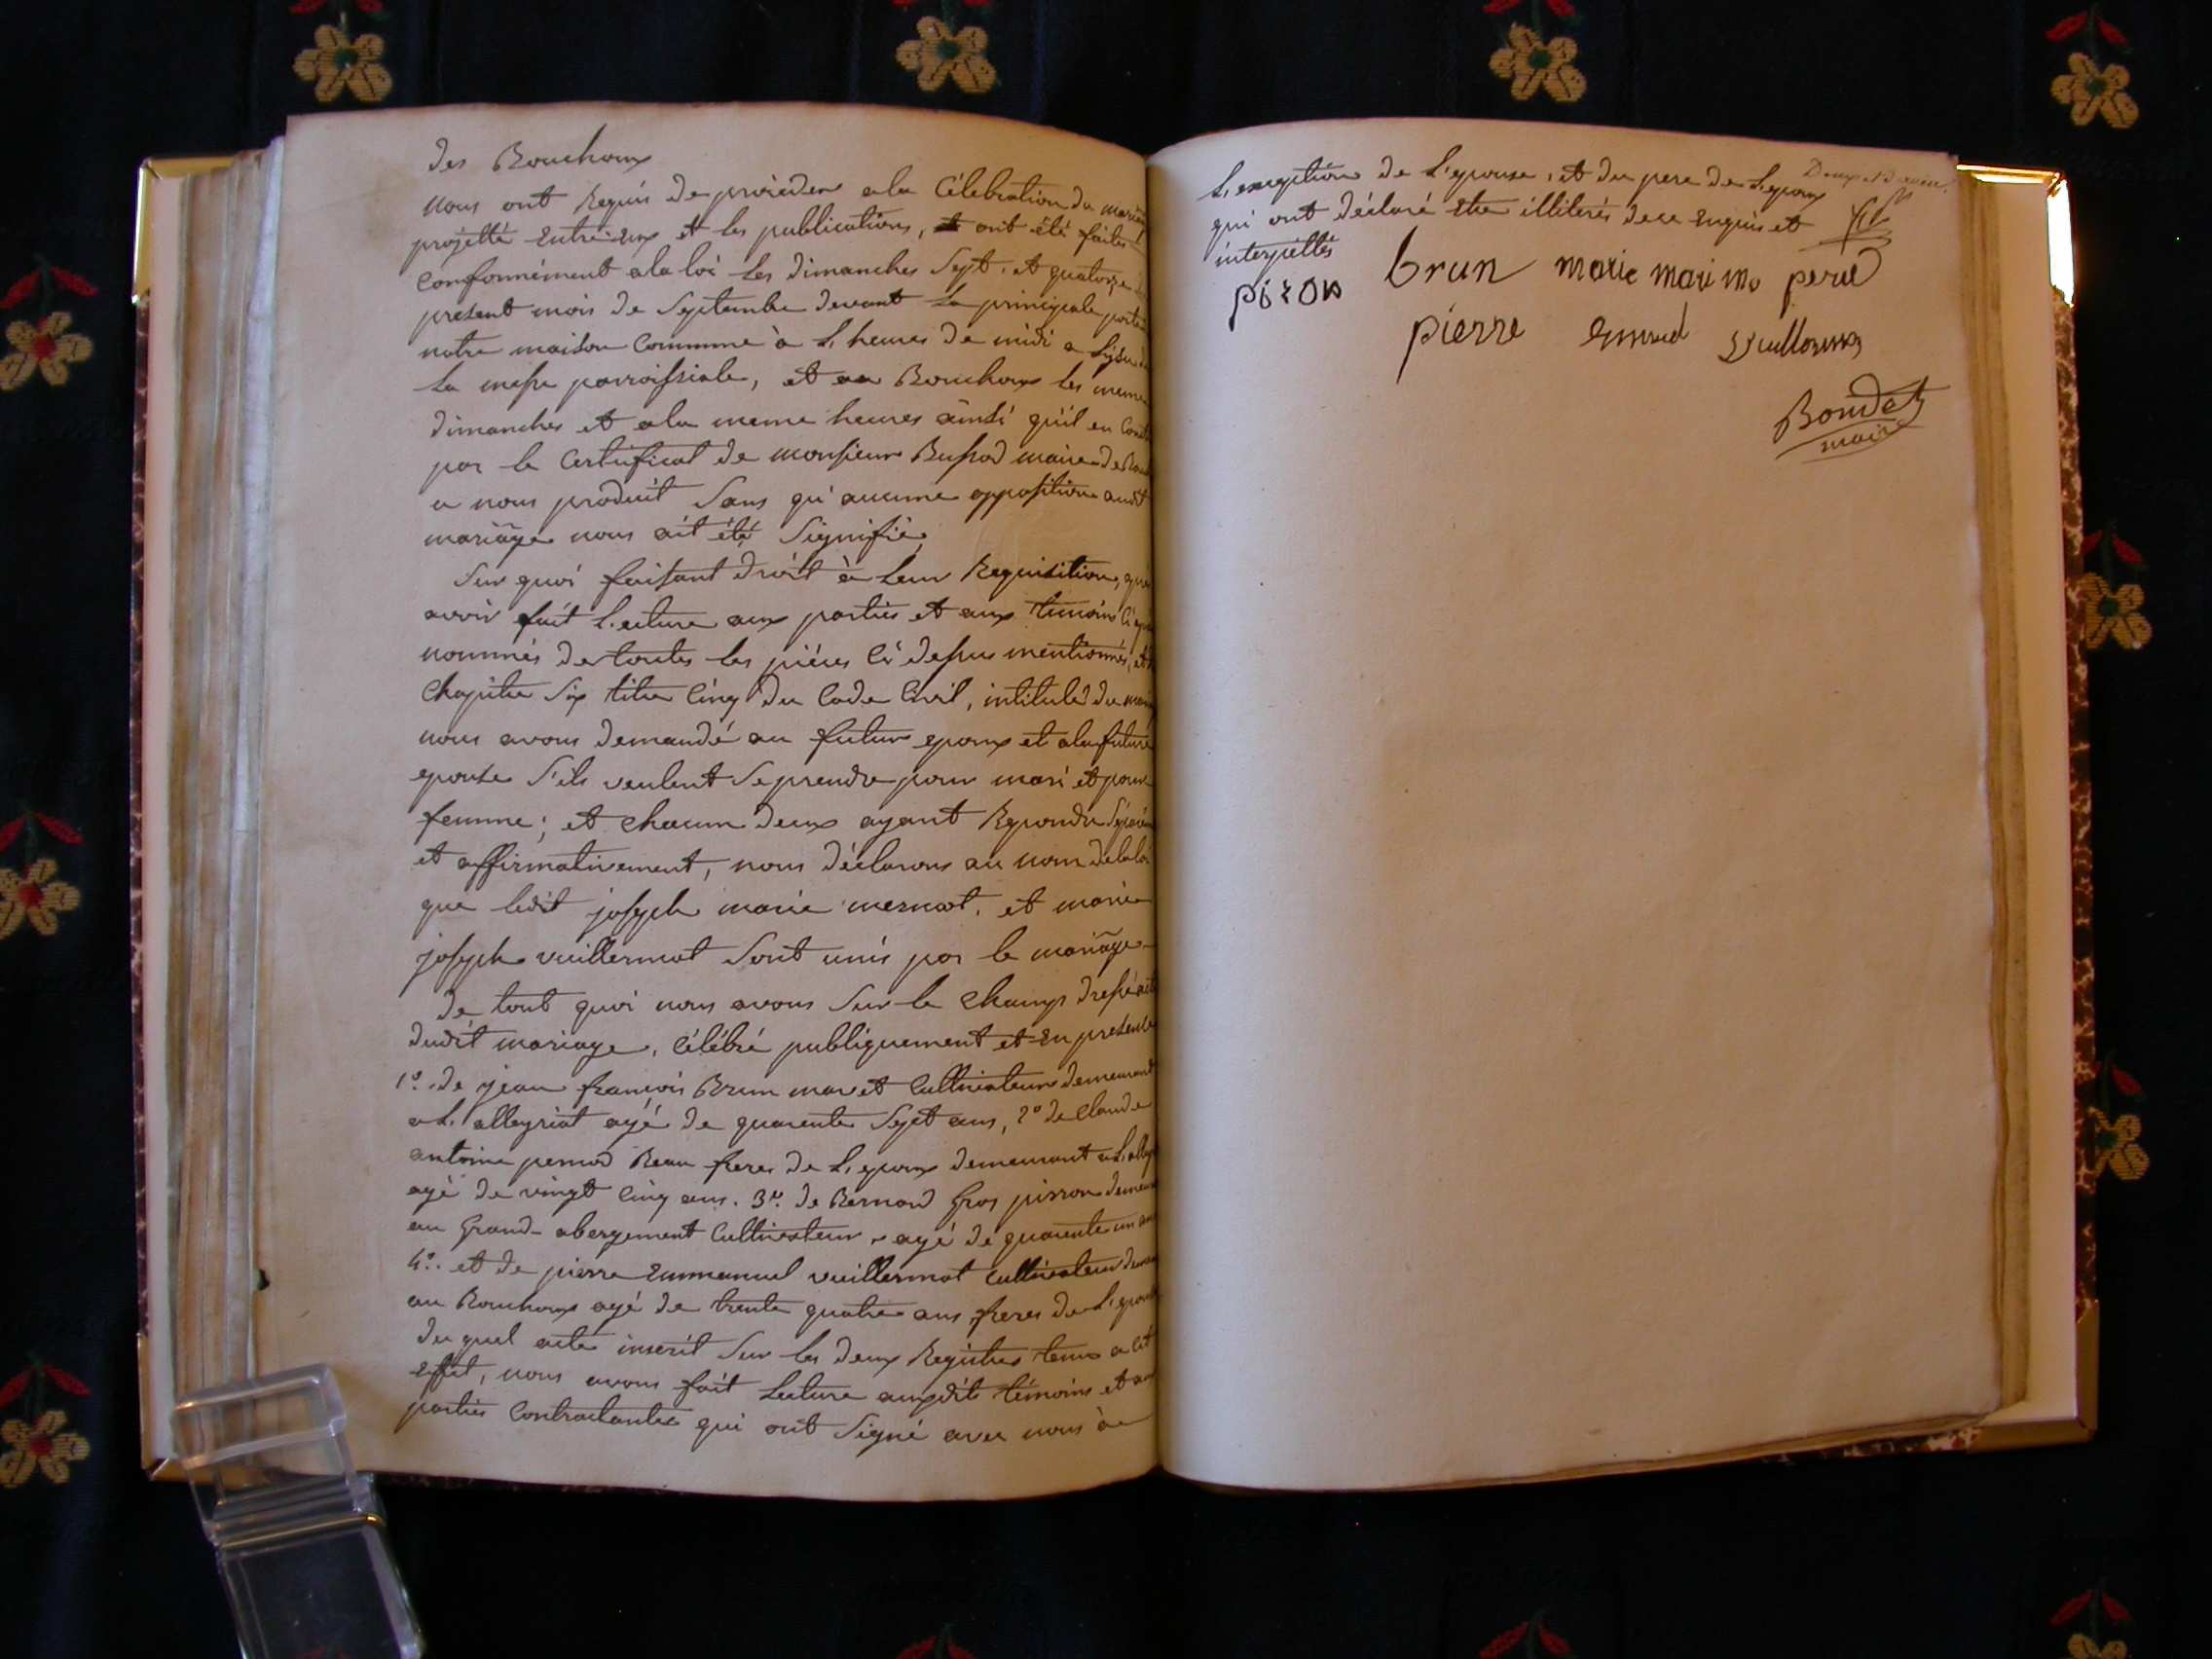 des Bouchoux
nous ont Requis de procéder ala Célébration du
projetté Entre Eux et les publications, ont été faites
Conformément ala loi Les dimanches Sept. et quatorze
present mois de Septembre devant La principale porte
notre maison Commune à L'heure de midi a L'issue
La messe parroissiale, et au Bouchoux les meme
dimanches et ala meme heures ainsi qu'il en
par le Certificat de monsieur maire de
a nous produit Sans qu'aucune opposition audit
mariage nous ait été Signifié,
Sur quoi faisant droit à Leur Requisition,
avoir fait Lecture aux parties et aux témoins Ci
nommés de toutes les pièces Ci dessus mentionnés,
Chapitre Six titre Cinq du Code Civil, intitulé du
nous avons demandé au futur epoux et ala future
epouse S'ils veulent Se prendre pour mari et pour
femme; et chacun deux ayant Repondu
et affirmativement, nous déclarons au nom dela loi
que ledit joseph marie mermot. et marie
joseph vuillermot Sont unis par le mariage
de tout quoi nous avons Sur le Champs dressé
dudit mariage, Célébré publiquement et En présence
1º. de jean françois Brun maret Cultivateur demeurant
a L'alleyriat agé de quarente Sept ans, 2º de Claude
antoine pernod Beau freres de L'epoux demeurant a
agé de vingt Cinq ans. 3º. de Bernard Gros pirron
au Grand-abergement Cultivateur agé de quarente un
4º. et de pierre Emmanuel vuillermot Cultivateur
au Bouchoux agé de trente quatre ans, freres de
du quel acte inscrit Sur les deux Registres tenus a cet
Effet, nous avons fait Lecture auxdits témoins et
parties Contractantes qui ont Signé avec nous à
L'exception de L'epouse, et du pere de L'epoux
qui ont déclaré Etre illiterés de ce Enquis et
interpellés
piron brun marie
pierre
Boudet
maire